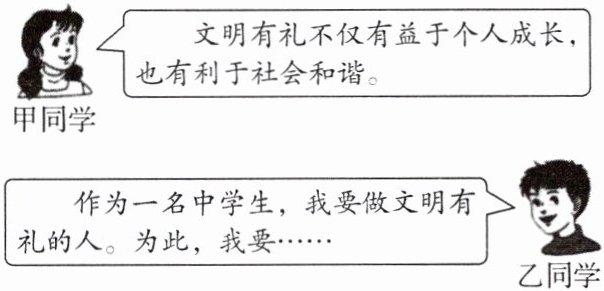 文明有礼不仅有益于个人成长，
也有利于社会和谐。
甲同学
作为一名中学生，我要做文明有
礼的人。为此，我要……
乙同学